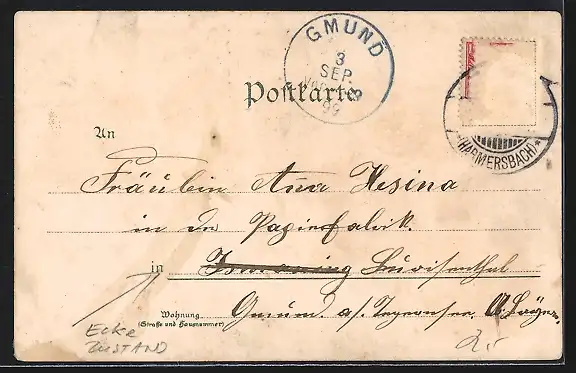 GMUND
3
SEP.
99
Postkarte
(HARMERSBACH)*
An
Fräulein Ana Hesina
in der Papierfabrik.
in Louisenthal
Wohnung
(Straße und Hausnummer)
Gmund. a/s. Tegernsee.
Ecke
ZUSTAND